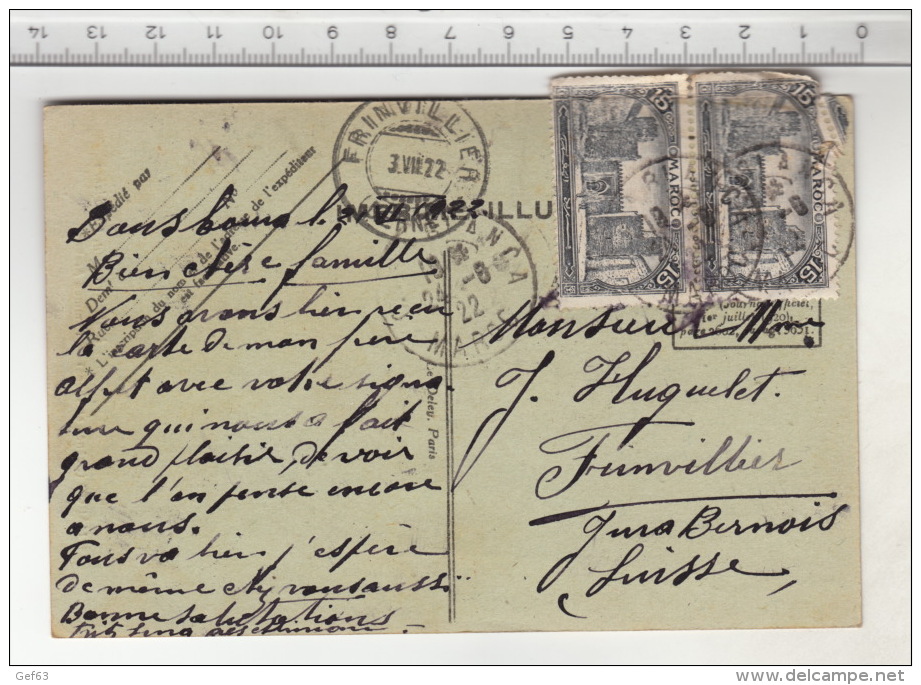 14 13 12 11 10 9 8 7 6 5 4 3 2 1 0
* Expédié par
M
Dem
Rue
* L'inscription du nom et de l'adresse de l'expéditeur
est facultative.
FRINVILLIER
3.VII.22
ILLU
CASABLANCA
22
MAROC
15 15
MAROC
15
15 15
MAROC
15
Journal officiel,
1er juillet 1920,
Bien chère famille
Vous avons bien reçu
la carte de mon père
Alfet avec votre signa
ture qui nous a fait
grand plaisir, de voir
que l'on pense encore
a nous.
Tous va bien j'espère
de même chez vous aussi
Bonne salutations
Le Deley, Paris
Monsieur Mme
J. Huguelet.
Frinvillier
Jura Bernois
Suisse,
Gef63
delcampe.net